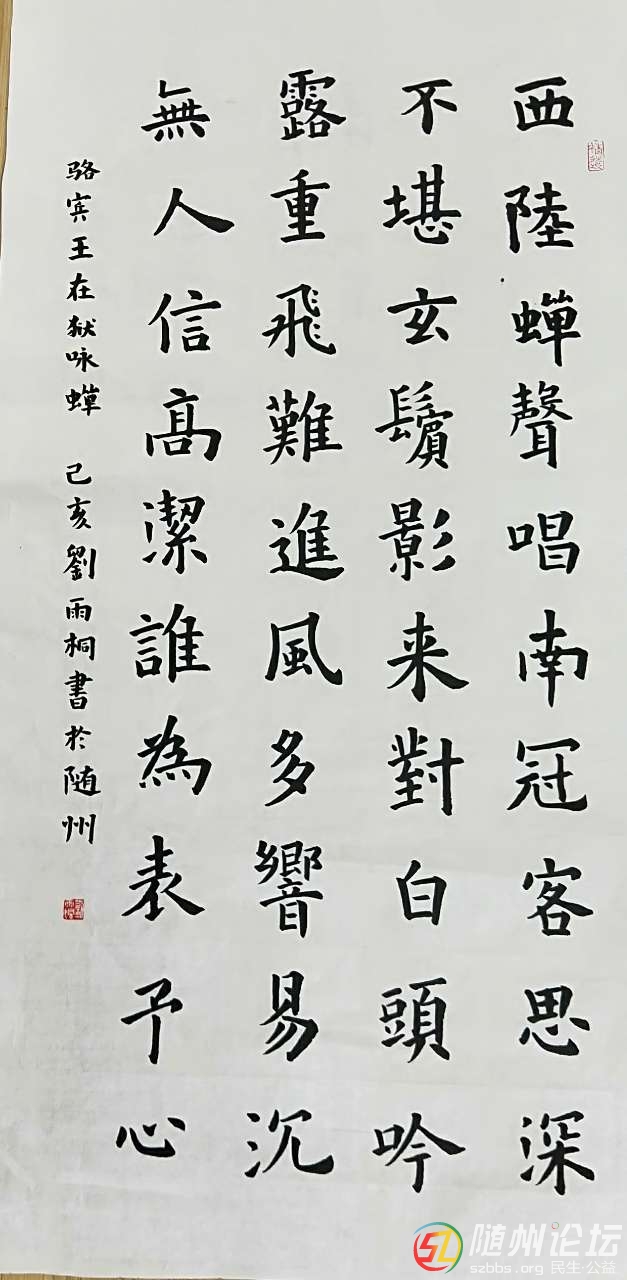 西陸蟬聲唱南冠客思深
不堪玄鬢影来對白頭吟
露重飛難進風多響易沉
無人信高潔誰為表予心
骆宾王在狱咏蟬 己亥劉雨桐書於随州
随州论坛
szbbs.org 民生·公益